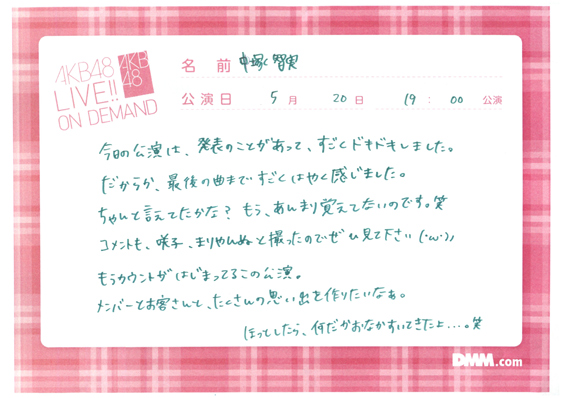 AKB48
LIVE!!
ON DEMAND
AKB
48
名 前 中塚智実
公演日 5月 20日 19:00 公演
今日の公演は、発表のことがあって、すごくドキドキしました。
だからか、最後の曲まですごくはやく感じました。
ちゃんと言えてたかな？ もう、あんまり覚えてないのです。笑
コメントも、咲子、まりやんぬと撮ったのでぜひ見て下さい (・ω・)ノ
もうカウントがはじまってるこの公演。
メンバーとお客さんと、たくさんの思い出を作りたいなぁ。
ほっとしたら、何だかおなかすいてきたよ…。笑
DMM.com